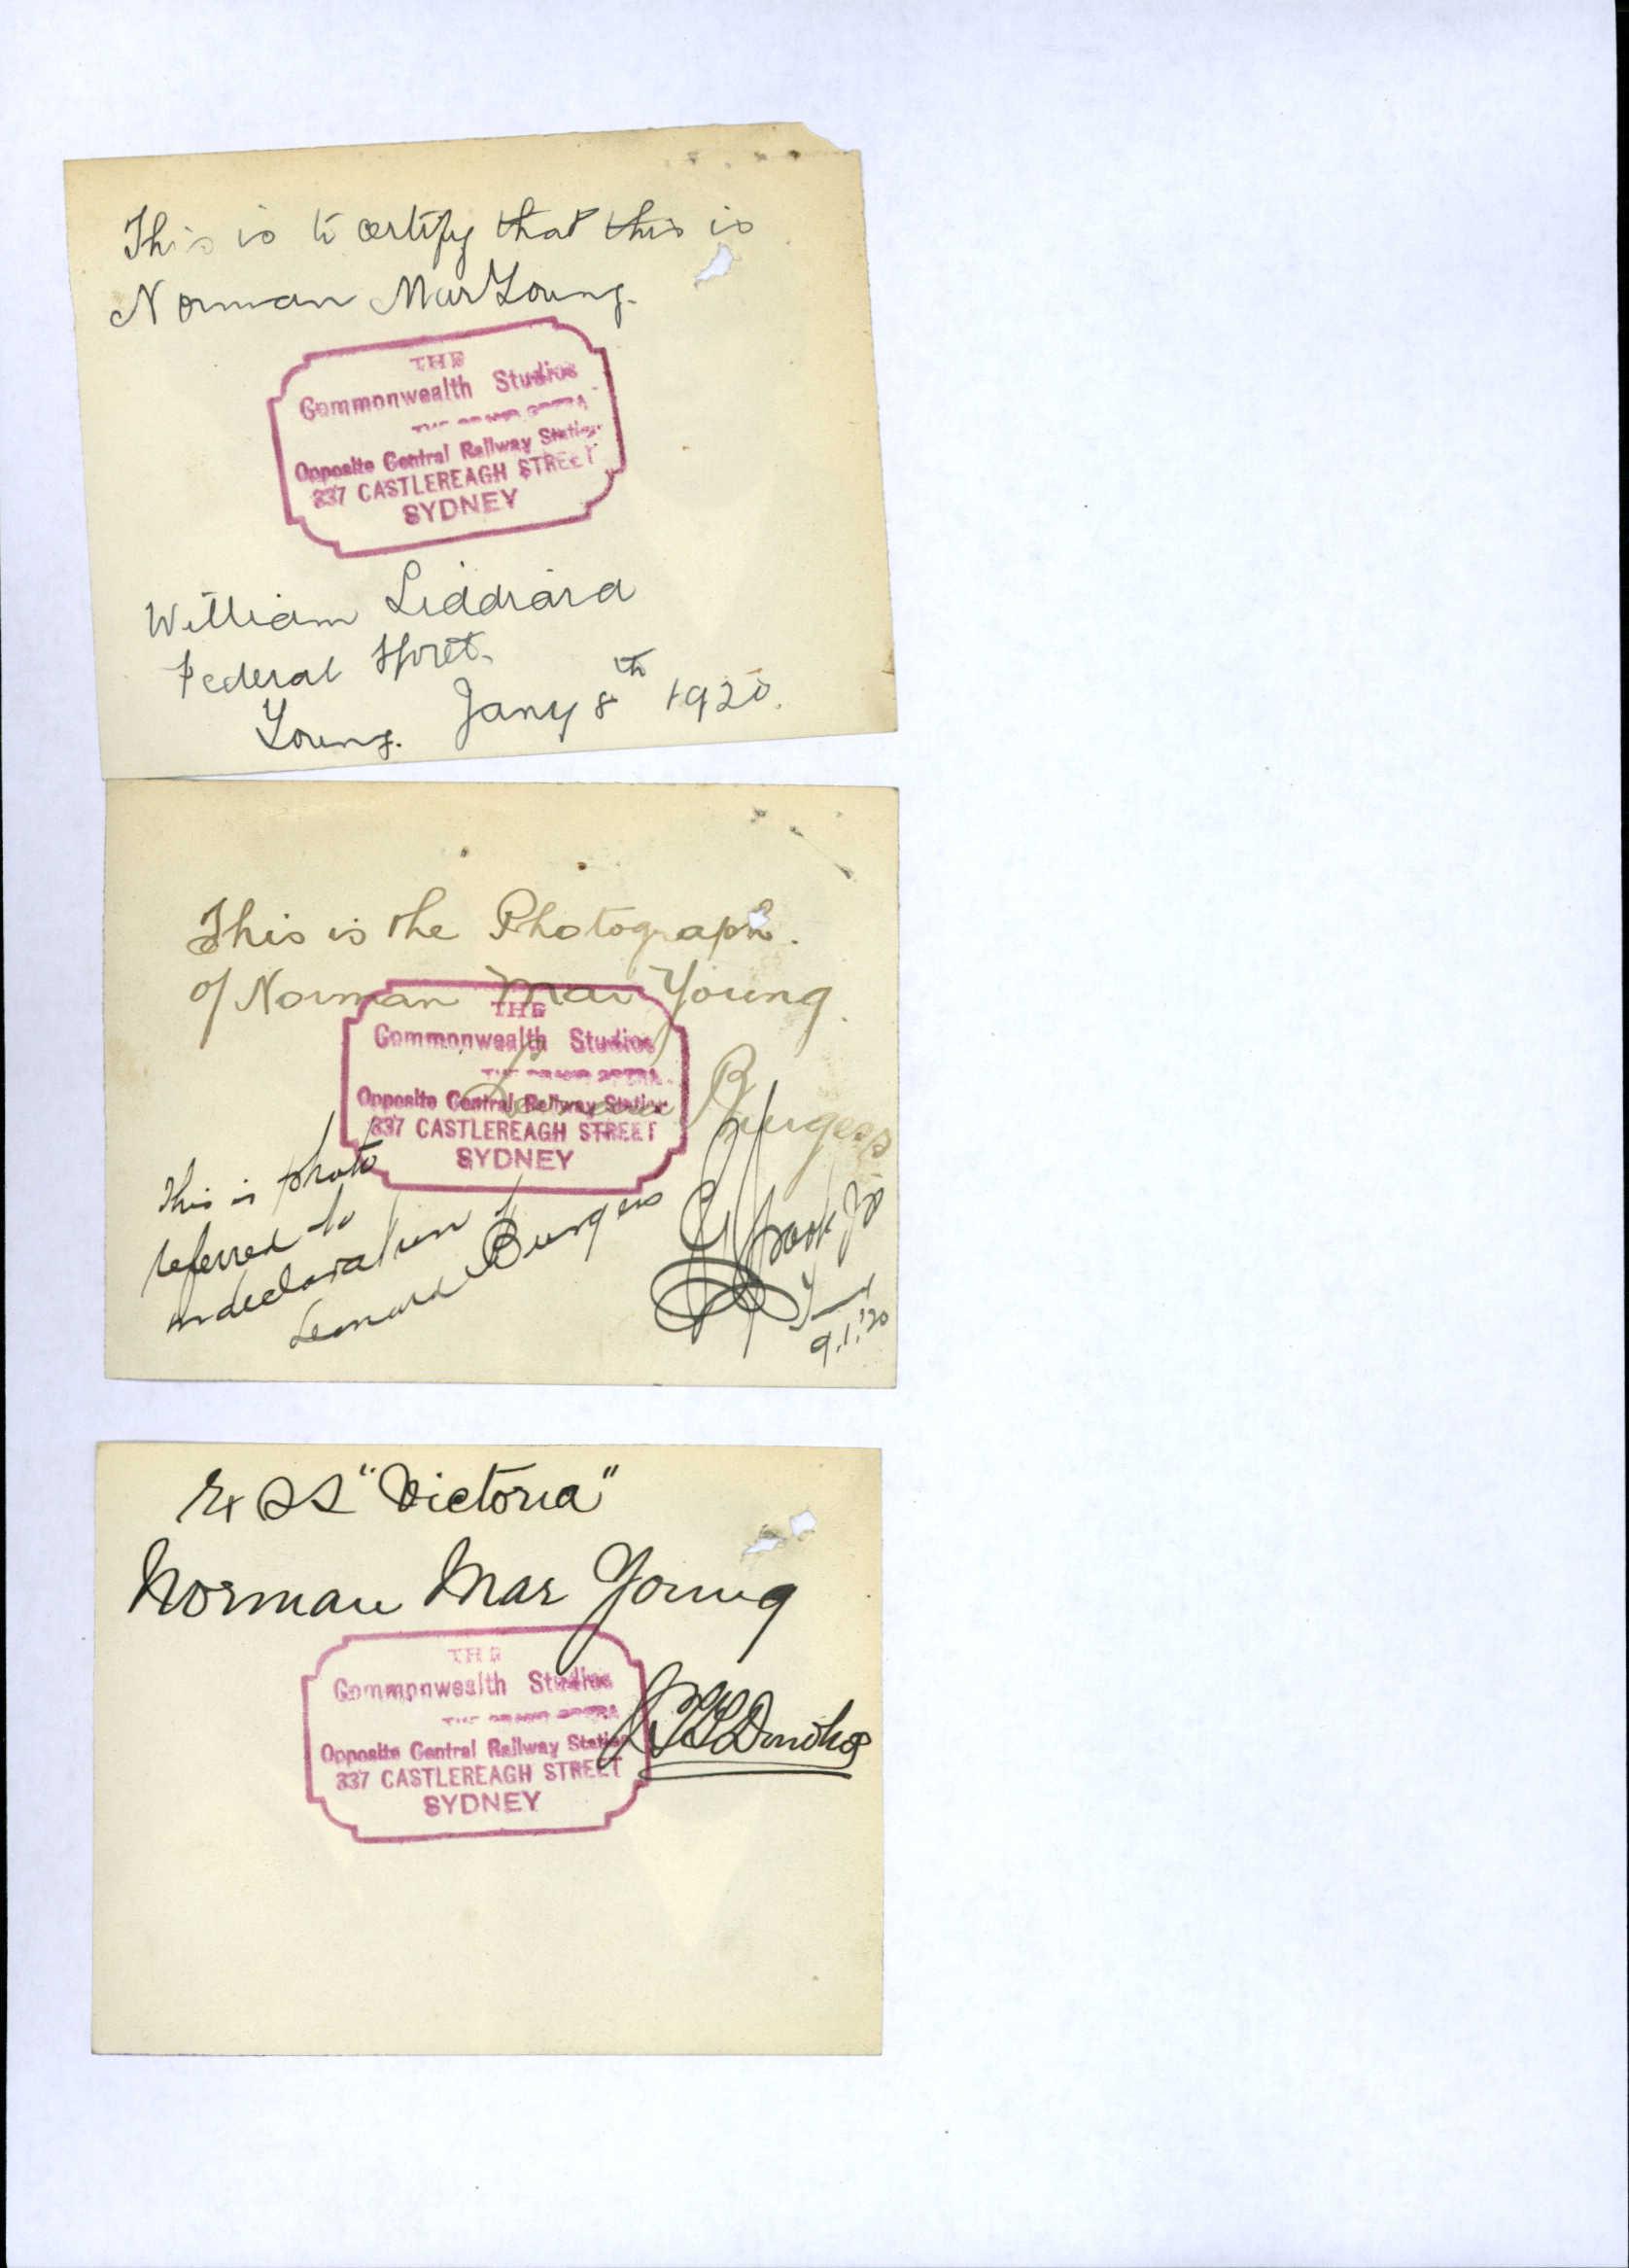 This is to certify that this is
Norman Mar Young.
THE
Commonwealth Studios
THE GRAND OPERA
Opposite Central Railway Station
337 CASTLEREAGH STREET
SYDNEY
William Liddiard
Federal
Young. Jany 8th 1920.
This is the Photograph.
of Norman Mar Young.
THE
Commonwealth Studios
THE GRAND OPERA
Opposite Central Railway Station
337 CASTLEREAGH STREET
SYDNEY
Leonard Burgess
This is photo
referred to
in declaration of
Leonard Burgess
JP
Young
9.1.'20
Ex SS "Victoria"
Norman Mar Young
THE
Commonwealth Studios
THE GRAND OPERA
Opposite Central Railway Station
337 CASTLEREAGH STREET
SYDNEY
Donohoe